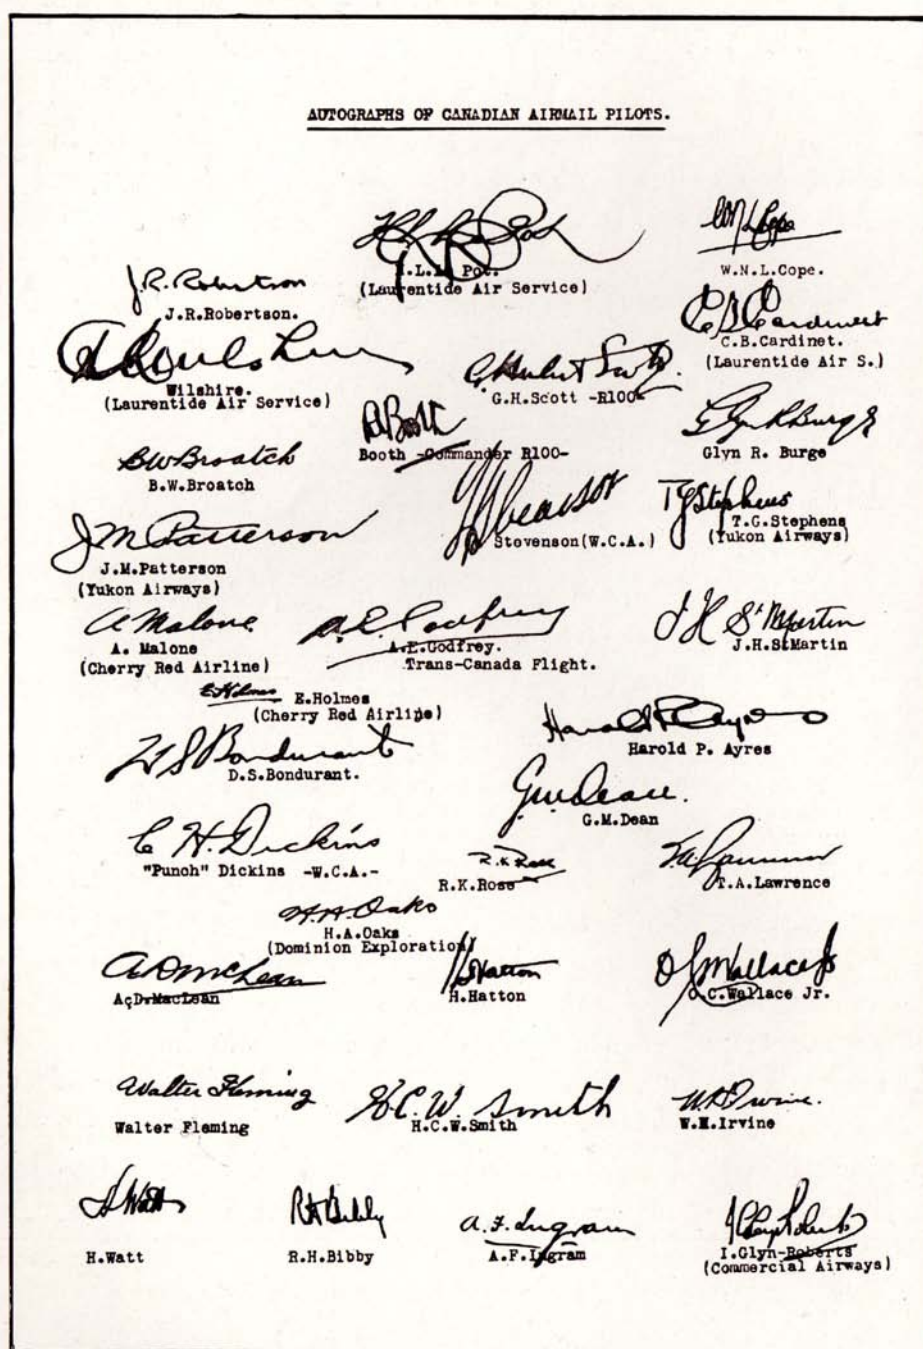 AUTOGRAPHS OF CANADIAN AIRMAIL PILOTS.
W.N.L.Cope.
(Laurentide Air Service)
J.R.Robertson
J.R.Robertson.
C.B.Cardinet.
(Laurentide Air S.)
Wilshire.
(Laurentide Air Service)
G.H.Scott -R100-
Booth
Booth -Commander R100-
Glyn R Burge
Glyn R. Burge
BWBroatch
B.W.Broatch
Stevenson(W.C.A.)
TGStephens
T.G.Stephens
(Yukon Airways)
JMPatterson
J.M.Patterson
(Yukon Airways)
A Malone
A. Malone
(Cherry Red Airline)
A.E.Godfrey
A.E.Godfrey.
Trans-Canada Flight.
J H St Martin
J.H.StMartin
E Holmes
E.Holmes
(Cherry Red Airline)
Harold P. Ayres
Harold P. Ayres
D S Bondurant
D.S.Bondurant.
G.M.Dean
C H. Dickins
"Punch" Dickins -W.C.A.-
R.K.Rose
R.K.Rose
T.A.Lawrence
H.A.Oaks
H.A.Oaks
(Dominion Exploration)
A D McLean
A.D.MacLean
Hatton
H.Hatton
Wallace Jr
C.Wallace Jr.
Walter Fleming
Walter Fleming
H.C.W. Smith
H.C.W.Smith
Irvine.
W.M.Irvine
H Watt
H.Watt
R H Bibby
R.H.Bibby
A.F.Ingram
A.F.Ingram
I.Glyn-Roberts
(Commercial Airways)